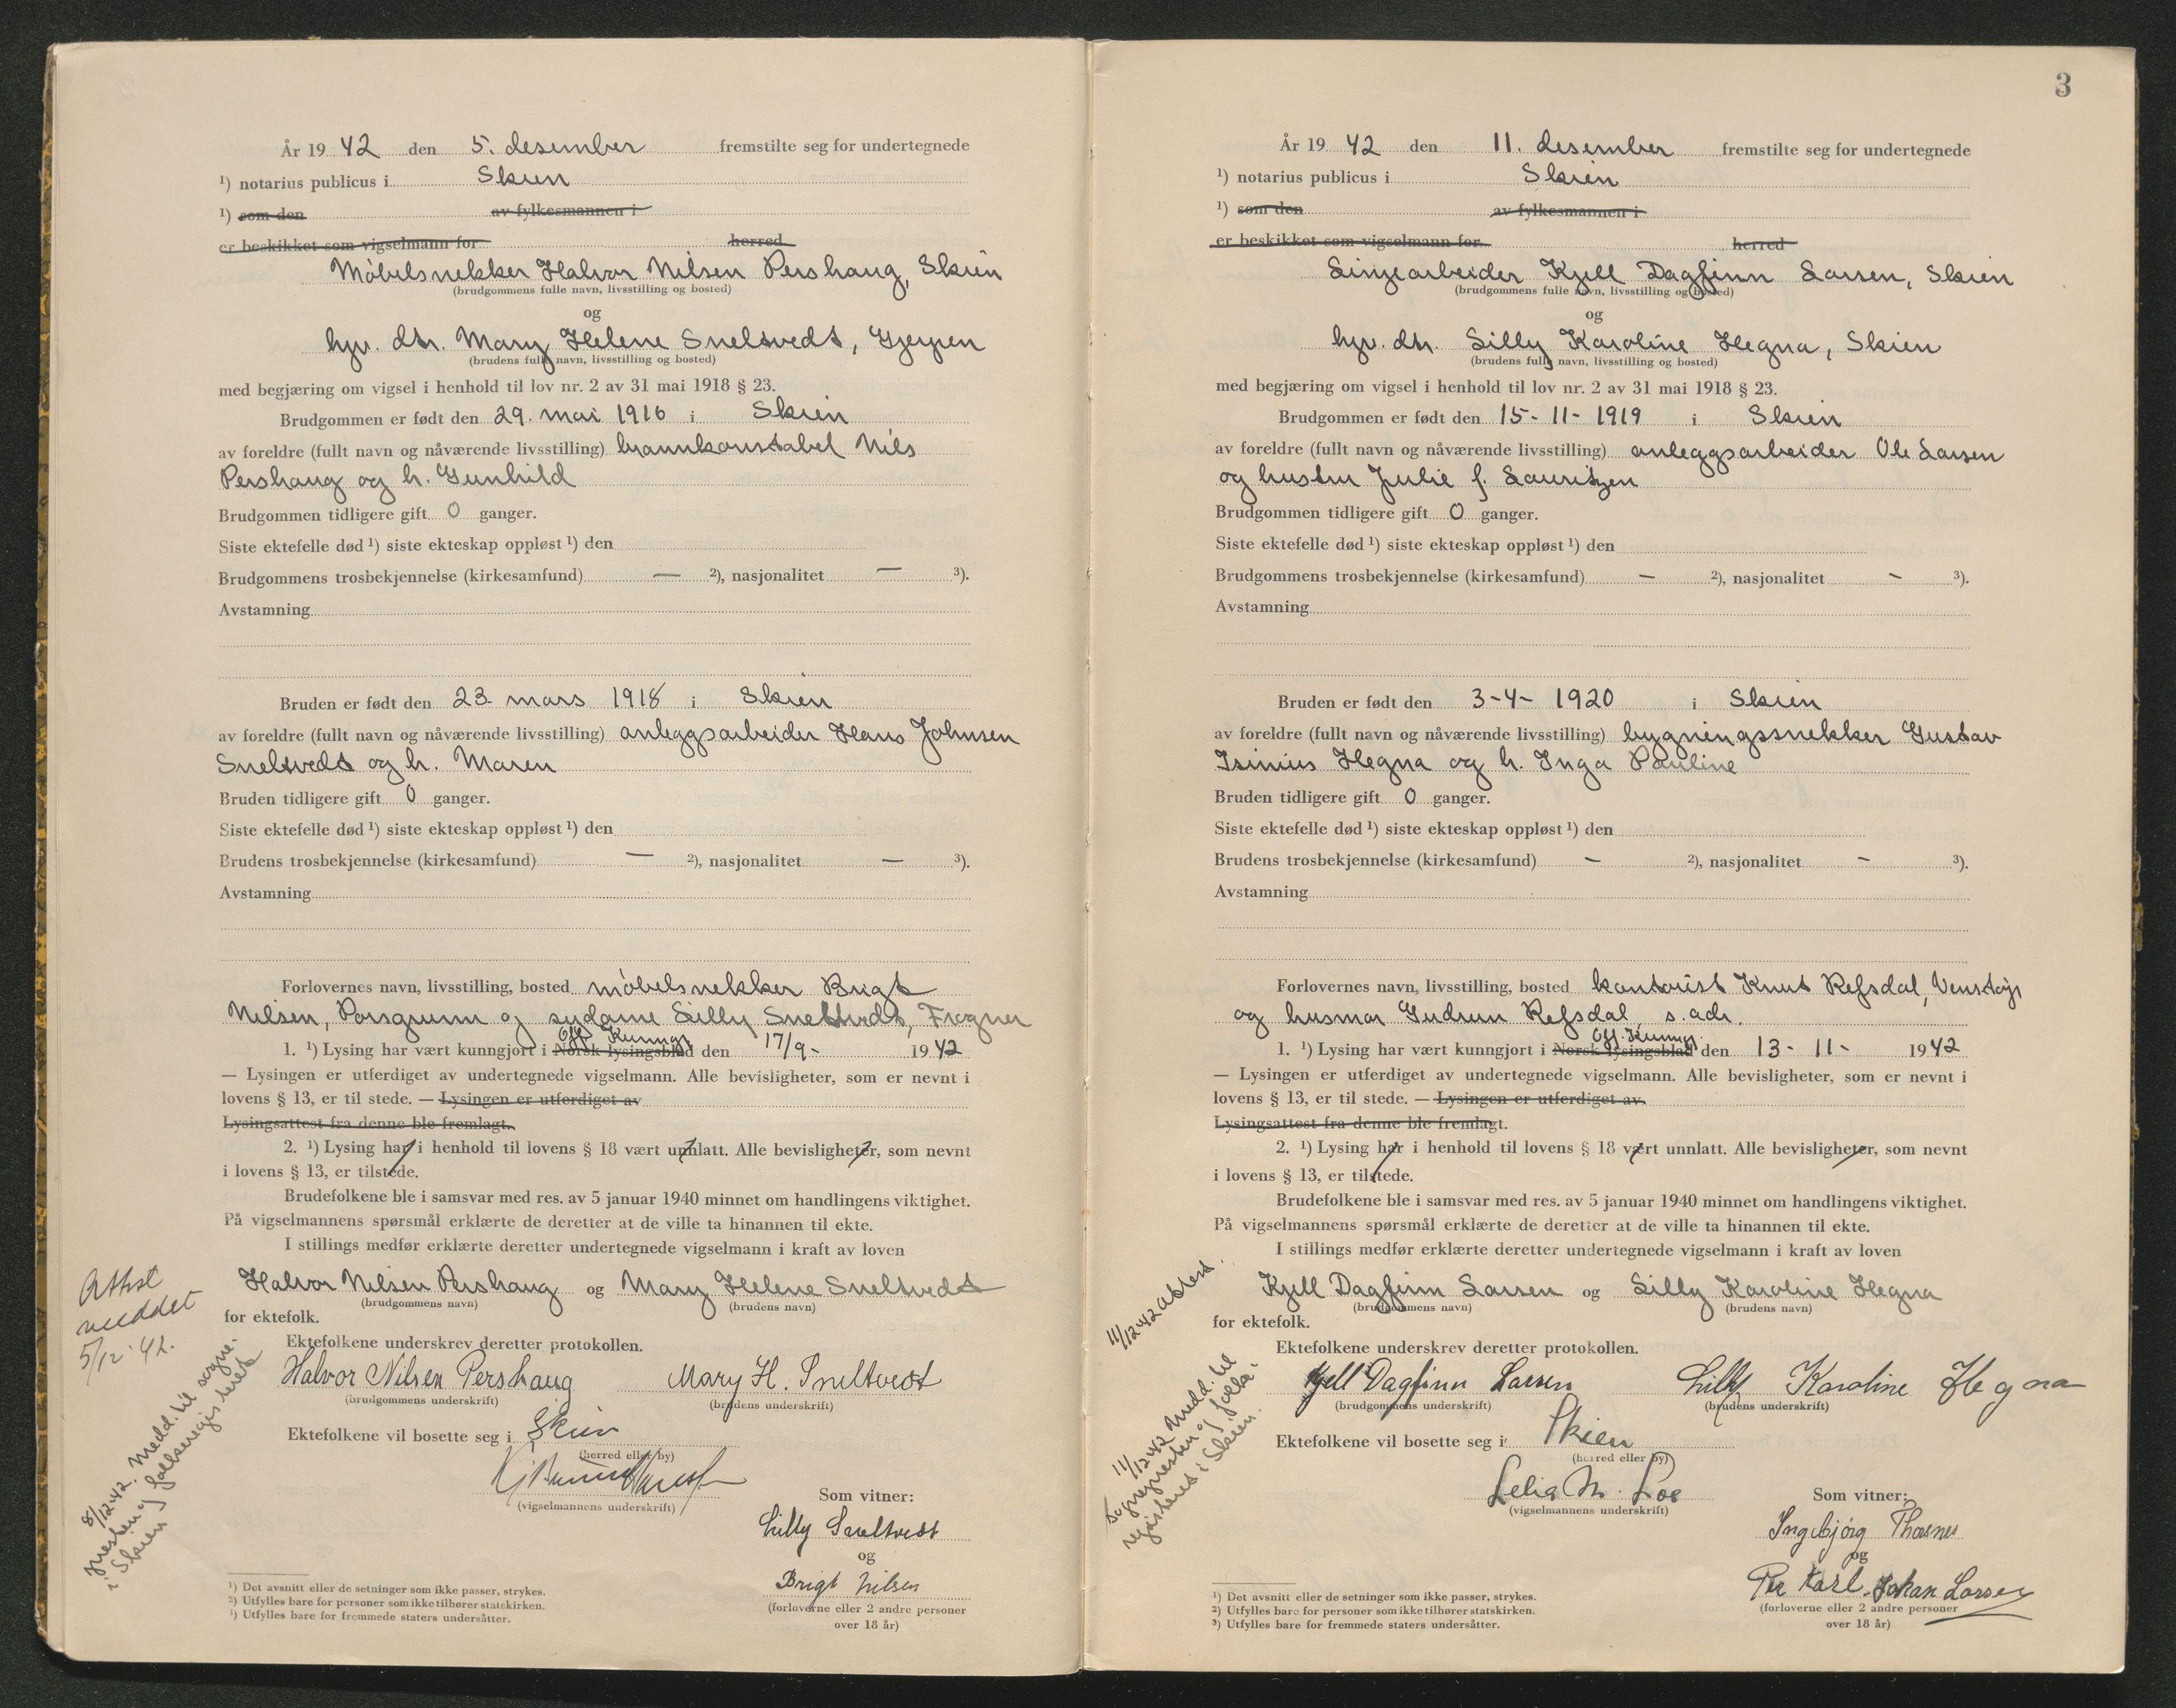 År 1942 den 5. desember fremstilte seg for undertegnede
¹) notarius publicus i Skien
¹) som den av fylkesmannen i
er beskikket som vigselmann for herred
Møbelsnekker Halvor Nilsen Pershaug, Skien
(brudgommens fulle navn, livsstilling og bosted)
og
hjv. dtr. Mary Helene Sneltvedt, Gjerpen
(brudens fulle navn, livsstilling og bosted)
med begjæring om vigsel i henhold til lov nr. 2 av 31 mai 1918 § 23.
Brudgommen er født den 29. mai 1916 i Skien
av foreldre (fullt navn og nåværende livsstilling) brannkonstabel Nils
Pershaug og h. Gunhild
Brudgommen tidligere gift 0 ganger.
Siste ektefelle død ¹) siste ekteskap oppløst ¹) den
Brudgommens trosbekjennelse (kirkesamfund) — ²), nasjonalitet — ³).
Avstamning
Bruden er født den 23. mars 1918 i Skien
av foreldre (fullt navn og nåværende livsstilling) anleggsarbeider Hans Johnsen
Sneltvedt og h. Maren
Bruden tidligere gift 0 ganger.
Siste ektefelle død ¹) siste ekteskap oppløst ¹) den
Brudens trosbekjennelse (kirkesamfund) — ²), nasjonalitet — ³).
Avstamning
Forlovernes navn, livsstilling, bosted møbelsnekker Brigt
Nilsen, Porsgrunn og sydame Lilly Sneltvedt, Frogner
Off. Kunngj.
1. ¹) Lysing har vært kunngjort i Norsk lysingsblad den 17/9- 1942
— Lysingen er utferdiget av undertegnede vigselmann. Alle bevisligheter, som er nevnt i
lovens § 13, er til stede. — Lysingen er utferdiget av
Lysingsattest fra denne ble fremlagt.
2. ¹) Lysing har i henhold til lovens § 18 vært unnlatt. Alle bevisligheter, som nevnt
i lovens § 13, er tilstede.
Brudefolkene ble i samsvar med res. av 5 januar 1940 minnet om handlingens viktighet.
På vigselmannens spørsmål erklærte de deretter at de ville ta hinannen til ekte.
I stillings medfør erklærte deretter undertegnede vigselmann i kraft av loven
Halvor Nilsen Pershaug og Mary Helene Sneltvedt
(brudgommens navn) (brudens navn)
for ektefolk.
Ektefolkene underskrev deretter protokollen.
Halvor Nilsen Pershaug Mary H. Sneltvedt
(brudgommens underskrift) (brudens underskrift)
Ektefolkene vil bosette seg i Skien
(herred eller by)
(vigselmannens underskrift)
Som vitner:
Lilly Sneltvedt
og
Brigt Nilsen
(forloverne eller 2 andre personer
over 18 år)
¹) Det avsnitt eller de setninger som ikke passer, strykes.
²) Utfylles bare for personer som ikke tilhører statskirken.
³) Utfylles bare for fremmede staters undersåtter.
Attest
meddelt
5/12-42.
8/12-42. Medd. til sogne-
presten og folkeregisteret
i Skien
3
År 1942 den 11. desember fremstilte seg for undertegnede
¹) notarius publicus i Skien
¹) som den av fylkesmannen i
er beskikket som vigselmann for herred
Linjearbeider Kjell Dagfinn Larsen, Skien
(brudgommens fulle navn, livsstilling og bosted)
og
hjv. dtr. Lilly Karoline Hegna, Skien
(brudens fulle navn, livsstilling og bosted)
med begjæring om vigsel i henhold til lov nr. 2 av 31 mai 1918 § 23.
Brudgommen er født den 15-11-1919 i Skien
av foreldre (fullt navn og nåværende livsstilling) anleggsarbeider Ole Larsen
og hustru Julie f. Lauritzen
Brudgommen tidligere gift 0 ganger.
Siste ektefelle død ¹) siste ekteskap oppløst ¹) den
Brudgommens trosbekjennelse (kirkesamfund) — ²), nasjonalitet — ³).
Avstamning
Bruden er født den 3-4-1920 i Skien
av foreldre (fullt navn og nåværende livsstilling) bygningssnekker Gustav
Isinius Hegna og h. Inga Pauline
Bruden tidligere gift 0 ganger.
Siste ektefelle død ¹) siste ekteskap oppløst ¹) den
Brudens trosbekjennelse (kirkesamfund) — ²), nasjonalitet — ³).
Avstamning
Forlovernes navn, livsstilling, bosted kontorist Knut Refsdal, Venstøp
og husmor Gudrun Refsdal, s. adr.
Off. Kunngj.
1. ¹) Lysing har vært kunngjort i Norsk lysingsblad den 13-11- 1942
— Lysingen er utferdiget av undertegnede vigselmann. Alle bevisligheter, som er nevnt i
lovens § 13, er til stede. — Lysingen er utferdiget av
Lysingsattest fra denne ble fremlagt.
2. ¹) Lysing har i henhold til lovens § 18 vært unnlatt. Alle bevisligheter, som nevnt
i lovens § 13, er tilstede.
Brudefolkene ble i samsvar med res. av 5 januar 1940 minnet om handlingens viktighet.
På vigselmannens spørsmål erklærte de deretter at de ville ta hinannen til ekte.
I stillings medfør erklærte deretter undertegnede vigselmann i kraft av loven
Kjell Dagfinn Larsen og Lilly Karoline Hegna
(brudgommens navn) (brudens navn)
for ektefolk.
Ektefolkene underskrev deretter protokollen.
Kjell Dagfinn Larsen Lilly Karoline Hegna
(brudgommens underskrift) (brudens underskrift)
Ektefolkene vil bosette seg i Skien
(herred eller by)
Lelia M. Loe
(vigselmannens underskrift)
Som vitner:
Ingebjørg
og
Per Karl Johan Larsen
(forloverne eller 2 andre personer
over 18 år)
¹) Det avsnitt eller de setninger som ikke passer, strykes.
²) Utfylles bare for personer som ikke tilhører statskirken.
³) Utfylles bare for fremmede staters undersåtter.
11/12-42 Attest.
11/12-42 Medd. til
sognepresten og folke-
registeret i Skien.